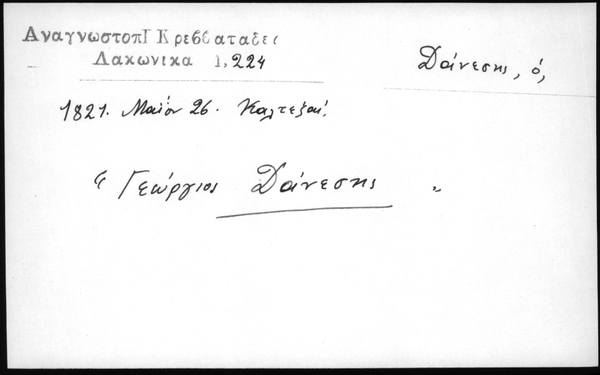 ΑναγνωστοπΓ Κρεββαταδες
Λακωνικα 1,224
Δάνεσης, ὁ,
1821. Μαΐου 26. Καλτεζαί.
“ Γεώργιος Δάνεσης „